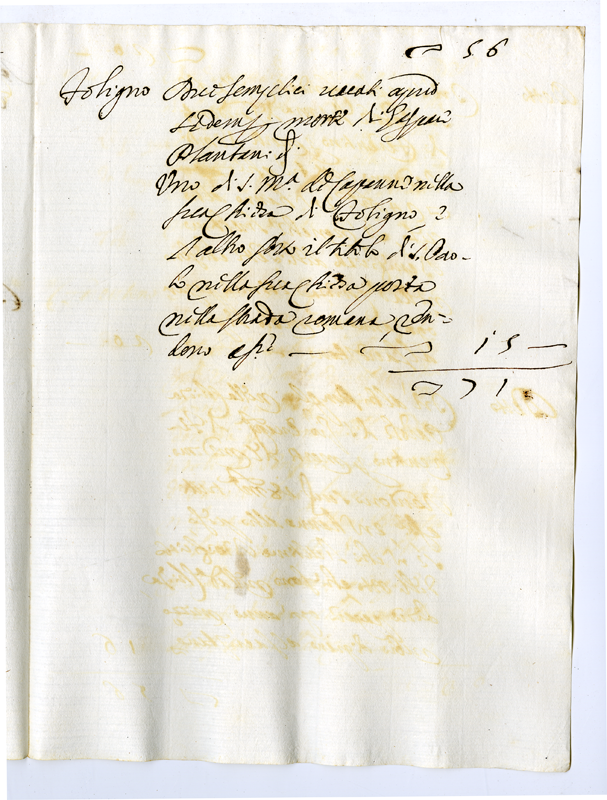 56
Foligno Due semplici vacati apud
sedem p. morte di Gaspari
Plantani
Uno di S. Mª del Capanno nella
sua Chiesa di Foligno, e
l'altro sotto il titolo di S. Pao-
lo nella sua Chiesa posta
nella strada romana, ren-
dono — 15 —
71